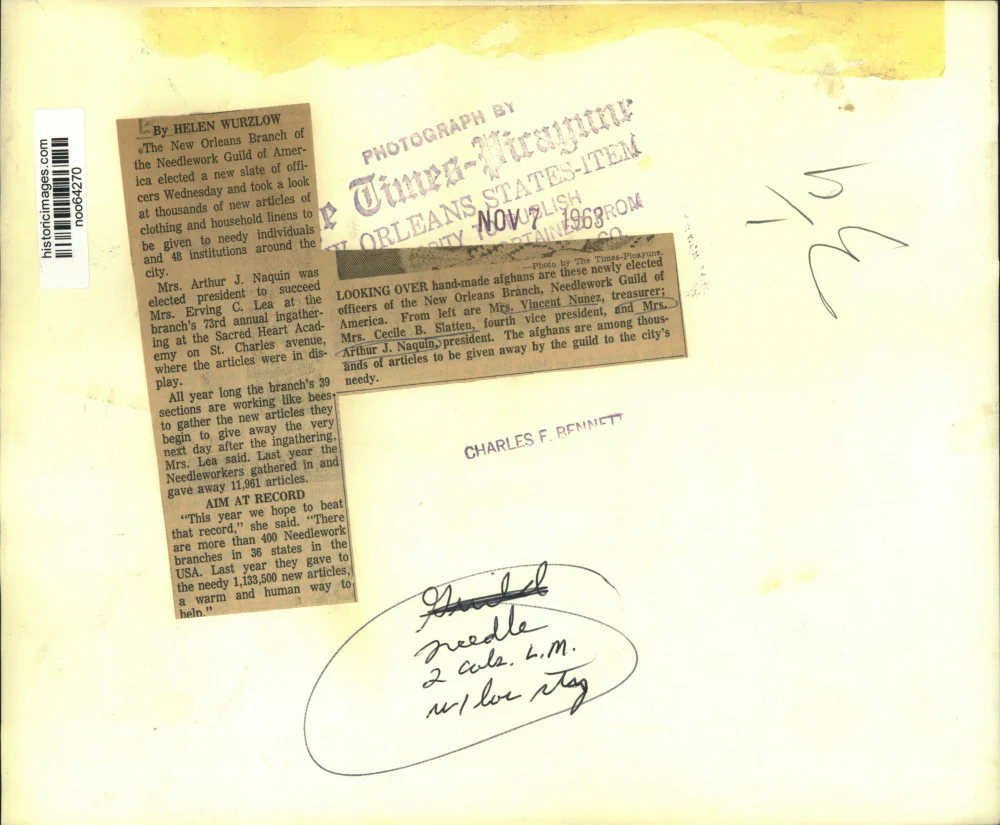 historicimages.com
noo64270
By HELEN WURZLOW
The New Orleans Branch of
the Needlework Guild of Amer-
ica elected a new slate of offi-
cers Wednesday and took a look
at thousands of new articles of
clothing and household linens to
be given to needy individuals
and 48 institutions around the
city.
Mrs. Arthur J. Naquin was
elected president to succeed
Mrs. Erving C. Lea at the
branch's 73rd annual ingather-
ing at the Sacred Heart Acad-
emy on St. Charles avenue,
where the articles were in dis-
play.
All year long the branch's 39
sections are working like bees,
to gather the new articles they
begin to give away the very
next day after the ingathering,
Mrs. Lea said. Last year the
Needleworkers gathered in and
gave away 11,961 articles.
AIM AT RECORD
"This year we hope to beat
that record," she said. "There
are more than 400 Needlework
branches in 36 states in the
USA. Last year they gave to
the needy 1,133,500 new articles,
a warm and human way to
help."
PHOTOGRAPH BY
Times-Picayune
ORLEANS STATES-ITEM
PUBLISH
NOV 7 1968
FROM
CO.
—Photo by The Times-Picayune.
LOOKING OVER hand-made afghans are these newly elected
officers of the New Orleans Branch, Needlework Guild of
America. From left are Mrs. Vincent Nunez, treasurer;
Mrs. Cecile B. Slatten, fourth vice president, and Mrs.
Arthur J. Naquin, president. The afghans are among thous-
ands of articles to be given away by the guild to the city's
needy.
CHARLES F. BENNETT
Guild
needle
2 cols. L.M.
w/ loc stag